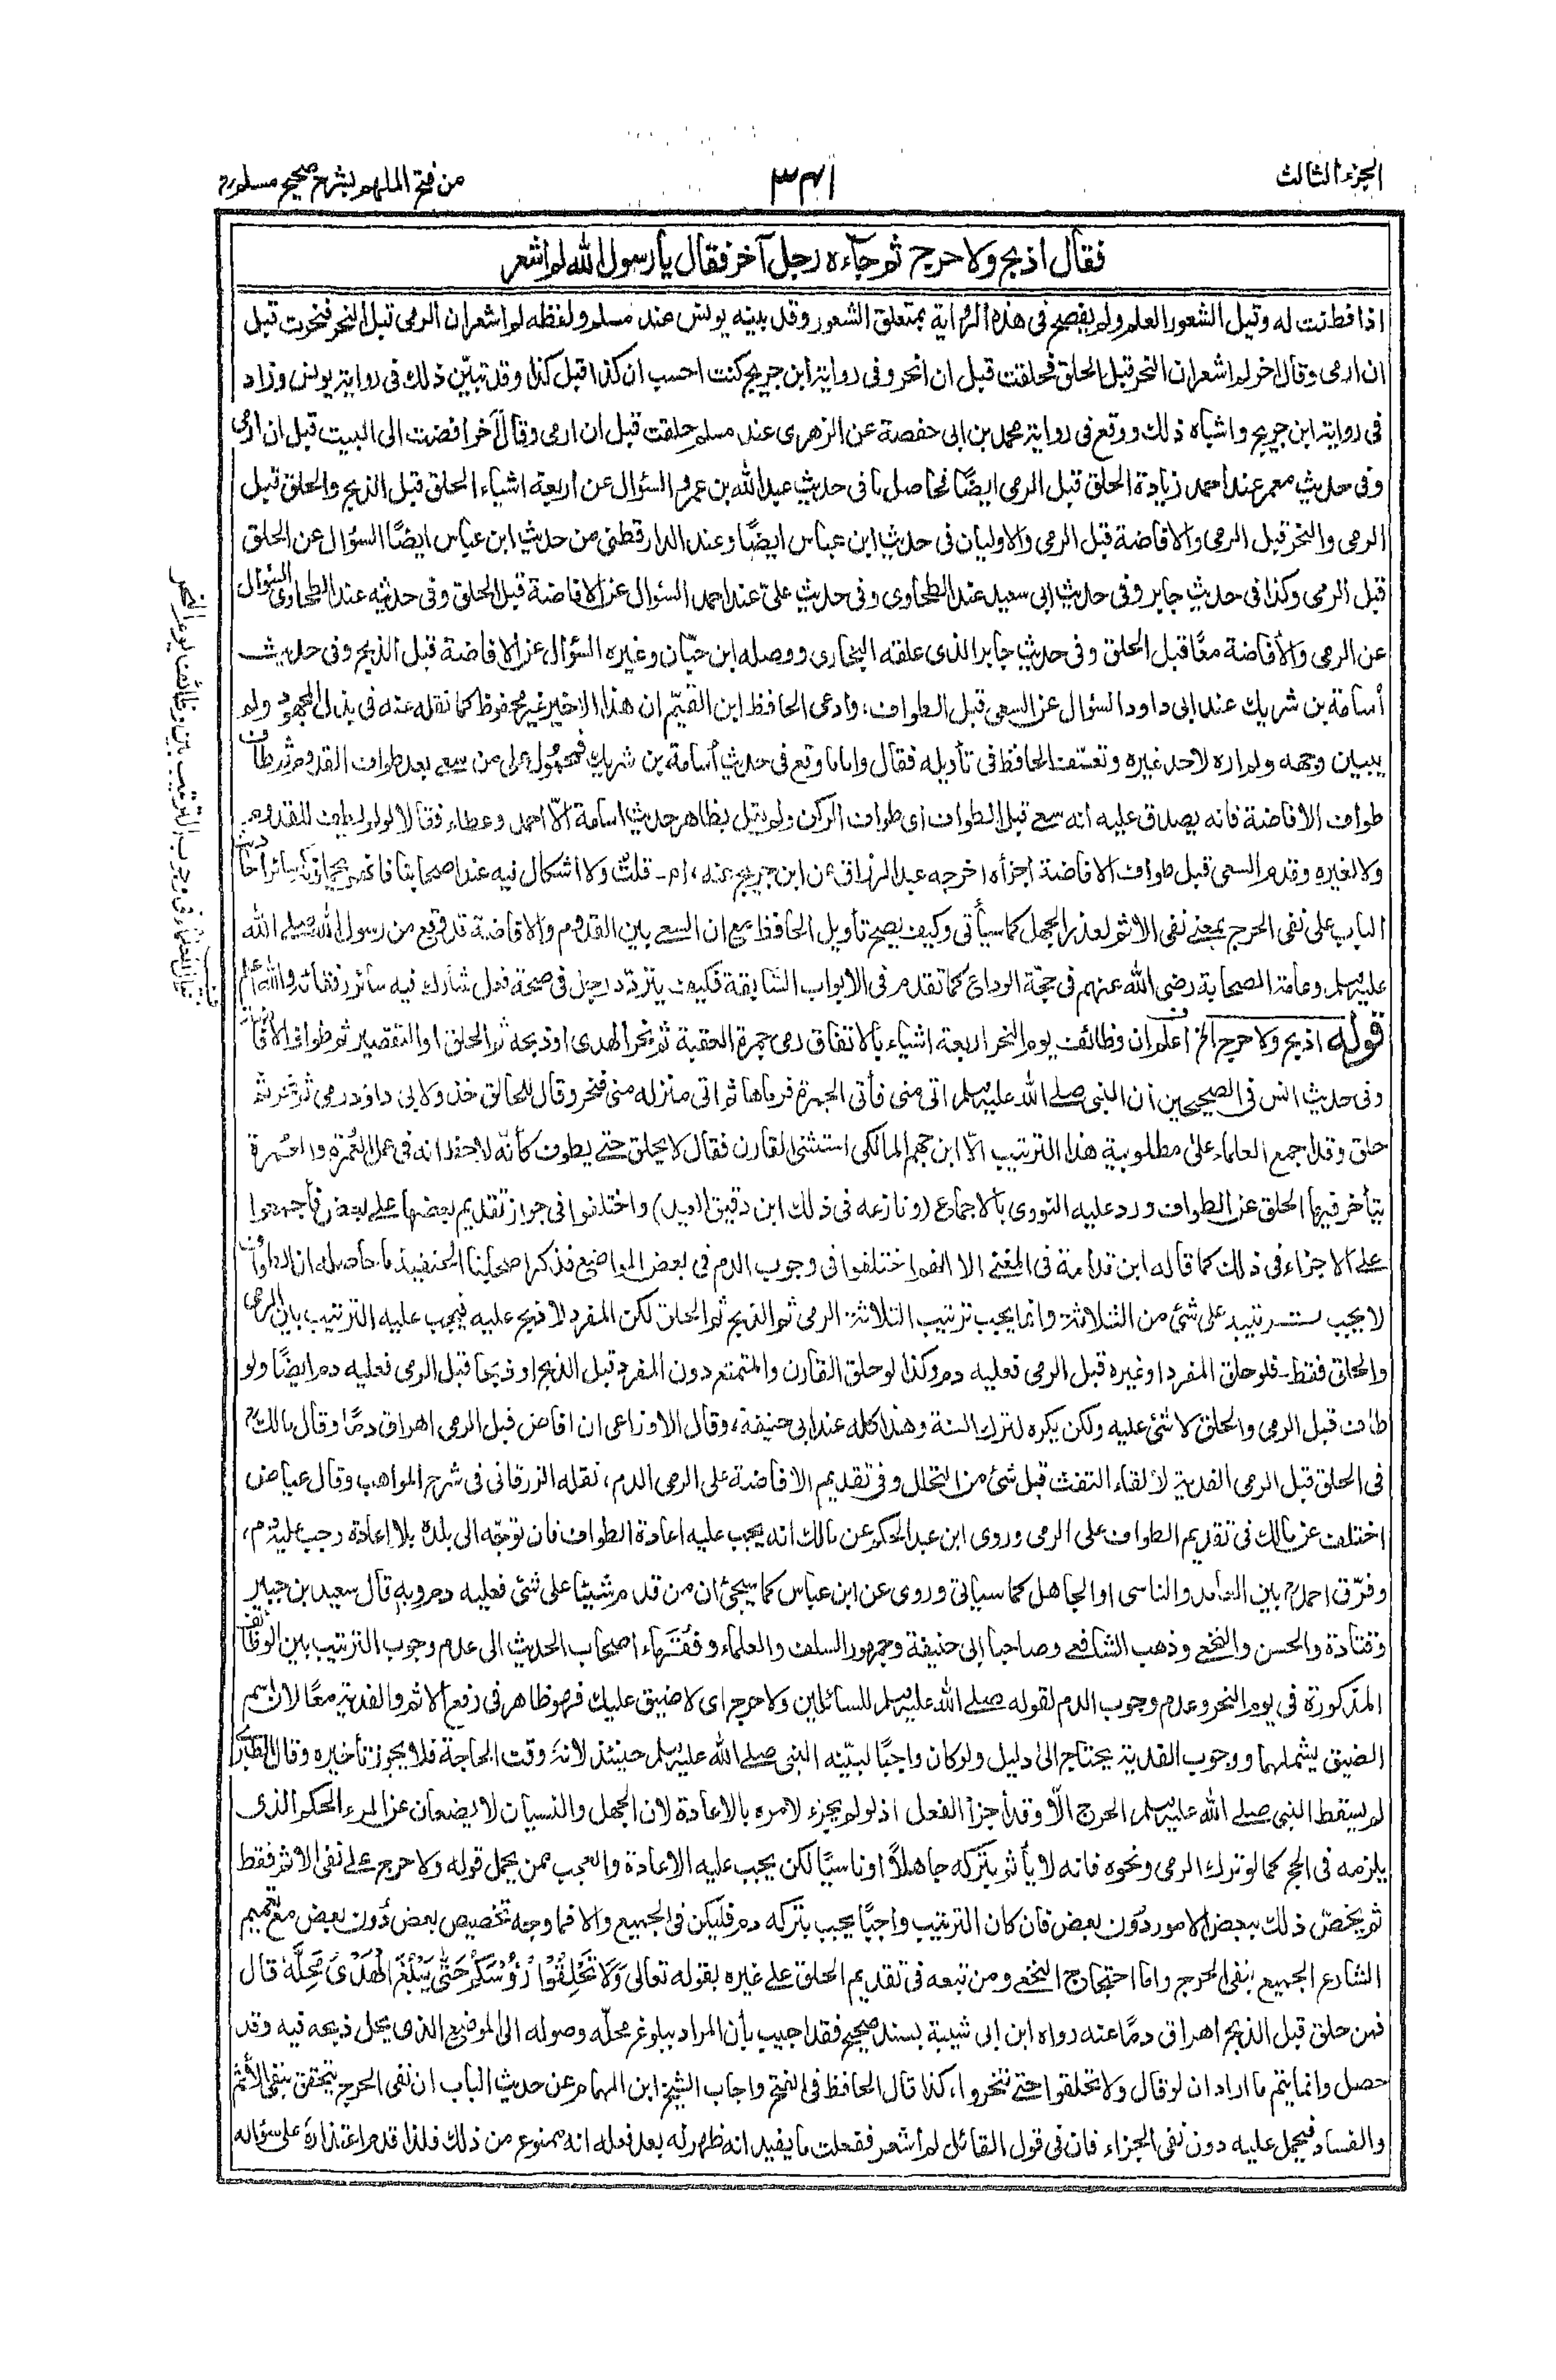 الجزء الثالث
٣٤١
من فتح الملهم بشرح صحيح مسلم
فقال اذبح ولا حرج ثم جاءه رجل آخر فقال يا رسول الله لم اشعر
اذا فطنت له وقيل الشعور العلم ولم يفصح فى هذه الرواية بمتعلق الشعور وقد بينه يونس عند مسلم ولفظه لم اشعر ان الرمى قبل النحر فنحرت قبل
ان ارمى وقال اخر لم اشعر ان النحر قبل الحلق فحلقت قبل ان انحر وفى رواية ابن جريج كنت احسب ان كذا قبل كذا وقد تبيّن ذلك فى رواية يونس وزاد
فى رواية ابن جريج واشباه ذلك ووقع فى رواية محمد بن ابى حفصة عن الزهرى عند مسلم حلقت قبل ان ارمى وقال آخر افضت الى البيت قبل ان ارمى
وفى حديث معمر عند احمد زيادة الحلق قبل الرمى ايضًا فحاصل ما فى حديث عبد الله بن عمرو السؤال عن اربعة اشياء الحلق قبل الذبح والحلق قبل
الرمى والنحر قبل الرمى والافاضة قبل الرمى والاوليان فى حديث ابن عباس ايضًا وعند الدارقطنى من حديث ابن عباس ايضًا السؤال عن الحلق
قبل الرمى وكذا فى حديث جابر وفى حديث ابى سعيد عند الطحاوى وفى حديث علىّ عند احمد السؤال عن الافاضة قبل الحلق وفى حديثه عند الطحاوى السؤال
عن الرمى والافاضة معًا قبل الحلق وفى حديث جابر الذى علقه البخارى ووصله ابن حبّان وغيره السؤال عن الافاضة قبل الذبح وفى حديث
أسامة بن شريك عند ابى داود السؤال عن السعى قبل الطواف، وادعى الحافظ ابن القيّم ان هذا الاخير غير محفوظ كما نقله عنه فى بذل المجهود ولم
يبين وجهه ولم اره لاحد غيره وتعسّف الحافظ فى تأويله فقال واما ما وقع فى حديث أسامة بن شريك فمحمول على من سعى بعد طواف القدوم ثم طاف
طواف الافاضة فانه يصدق عليه انه سعى قبل الطواف اى طواف الركن ولم يقل بظاهر حديث اسامة الّا احمد وعطاء فقالا لو لم يطف للقدوم
ولا لغيره وقدم السعى قبل طواف الافاضة اجزأه اخرجه عبد الرزاق عن ابن جريج عنه، اھ ـ قلت ولا اشكال فيه عند اصحابنا سائر احاديث
الباب على نفى الحرج بمعنى نفى الاثم لعذر الجهل كما سيأتى وكيف يصح تأويل الحافظ مع ان السعى بين القدوم والافاضة قد وقع من رسول الله صلى الله
عليه وسلم وعامة الصحابة رضى الله عنهم فى حجّة الوداع كما تقدم فى الابواب السابقة فكيف يتردّد رجل فى صحة فعل شارك فيه سائر رفقائه والله اعلم
قوله اذبح ولا حرج الخ اعلم ان وظائف يوم النحر اربعة اشياء بالاتفاق رمى جمرة العقبة ثم نحر الهدى او ذبحه ثم الحلق او التقصير ثم طواف الافاضة
وفى حديث انس فى الصحيحين أن النبى صلى الله عليه وسلم اتى منى فأتى الجمرة فرماها ثم اتى منزله بمنى فنحر وقال للحالق خذ ولابى داود رمى ثم نحر ثم
حلق وقد اجمع العلماء على مطلوبية هذا الترتيب الّا ابن جهم المالكى استثنى القارن فقال لا يحلق حتى يطوف كأنّه لاحظ انه فى عمل العُمرة والعُمرة
يتأخر فيها الحلق عن الطواف ورد عليه النووى بالاجماع (ونازعه فى ذلك ابن دقيق العيد) واختلفوا فى جواز تقديم بعضها على بعض فأجمعوا
على الاجزاء فى ذلك كما قاله ابن قدامة فى المغنى الا انهم اختلفوا فى وجوب الدم فى بعض المواضع فذكر اصحابنا الحنفية ما حاصله ان الطواف
لا يجب ترتيبه على شئ من الثلاثة وانما يجب ترتيب الثلاثة الرمى ثم الذبح ثم الحلق لكن المفرد لا ذبح عليه فيجب عليه الترتيب بين الرمى
والحلق فقط ـ فلو حلق المفرد او غيره قبل الرمى فعليه دم وكذا لو حلق القارن والمتمتع دون المفرد قبل الذبح او ذبحا قبل الرمى فعليه دم ايضًا ولو
طاف قبل الرمى والحلق لا شئ عليه ولكن يكره لترك السنة وهذا كله عند ابى حنيفة، وقال الاوزاعى ان افاض قبل الرمى اهراق دمًا وقال مالك
فى الحلق قبل الرمى الفدية لالقاء التفث قبل شئ من التحلل وفى تقديم الافاضة على الرمى الدم، نقله الزرقانى فى شرح المواهب وقال عياض
اختلف عن مالك فى تقديم الطواف على الرمى وروى ابن عبد الحكم عن مالك انه يجب عليه اعادة الطواف فان توجّه الى بلده بلا اعادة وجب عليه دم،
وفرّق احمد بين العامد والناسى او الجاهل كما سيأتى وروى عن ابن عباس كما سيجئ ان من قدم شيئا على شئ فعليه دم وبه قال سعيد بن جبير
وقتادة والحسن والنخعى وذهب الشافعى وصاحبا ابى حنيفة وجمهور السلف والعلماء وفقهاء اصحاب الحديث الى عدم وجوب الترتيب بين الوظائف
المذكورة فى يوم النحر وعدم وجوب الدم لقوله صلى الله عليه وسلم للسائلين ولا حرج اى لا ضيق عليك فهو ظاهر فى رفع الاثم والفدية معًا لان اسم
الضيق يشملهما ووجوب الفدية يحتاج الى دليل ولو كان واجبًا لبيّنه النبى صلى الله عليه وسلم حينئذ لانه وقت الحاجة فلا يجوز تأخيره وقال الطبرى
لم يسقط النبى صلى الله عليه وسلم الحرج الّا وقد أجزأ الفعل اذ لو لم يجزء لامره بالاعادة لان الجهل والنسيان لا يضعان عن المرء الحكم الذى
يلزمه فى الحج كما لو ترك الرمى ونحوه فانه لا يأثم بتركه جاهلًا او ناسيًا لكن يجب عليه الاعادة والعجب ممن يحمل قوله ولا حرج على نفى الاثم فقط
ثم يخصّ ذلك ببعض الامور دون بعض فان كان الترتيب واجبًا يجب بتركه دم فليكن فى الجميع والا فما وجه تخصيص بعض دون بعض مع تعميم
الشارع الجميع بنفى الحرج واما احتجاج النخعى ومن تبعه فى تقديم الحلق على غيره بقوله تعالى وَلَا تَحْلِقُوْا رُءُوْسَكُمْ حَتّٰى يَبْلُغَ الْهَدْىُ مَحِلَّهُ قال
فمن حلق قبل الذبح اهراق دمًا عنه رواه ابن ابى شيبة بسند صحيح فقد اجيب بأن المراد ببلوغ محلّه وصوله الى الموضع الذى يحل ذبحه فيه وقد
حصل وانما يتم ما اراد ان لو قال ولا تحلقوا حتى تنحروا، كذا قال الحافظ فى الفتح واجاب الشيخ ابن الهمام عن حديث الباب ان نفى الحرج يتحقق بنفى الأثم
والفساد فيحمل عليه دون نفى الجزاء فان فى قول القائل لم اشعر ففعلت ما يفيد انه ظهر له بعد فعله انه ممنوع من ذلك فلذا قدم اعتذاره على سؤاله
العلماء فى وجوب الترتيب بين وظائف يوم النحر